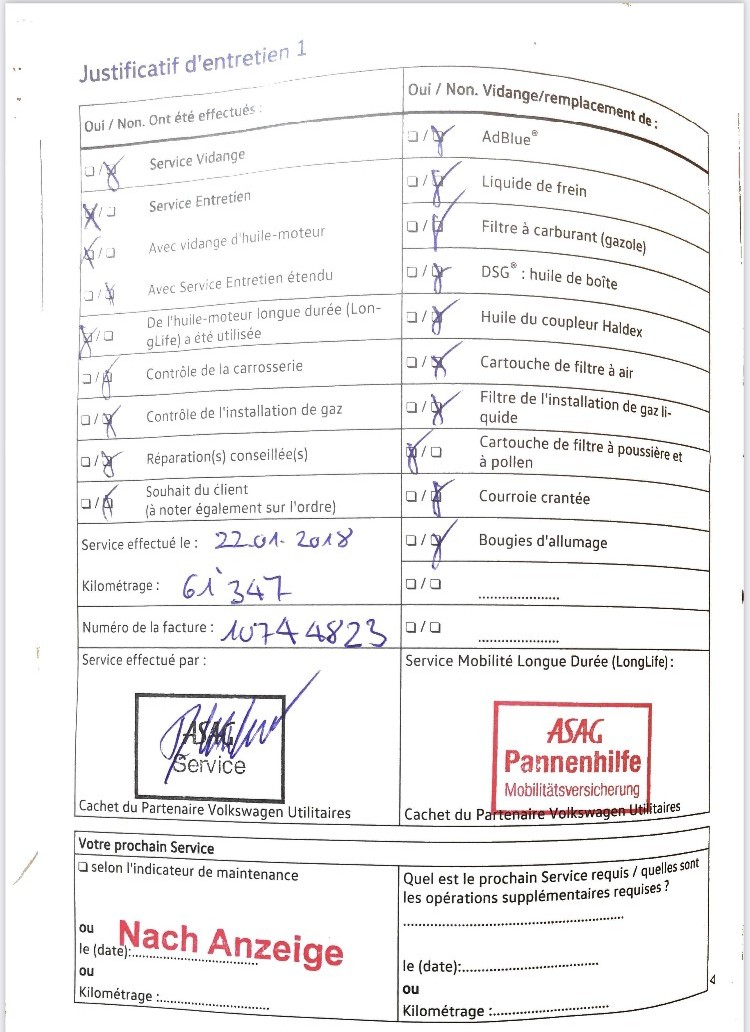 Justificatif d'entretien 1
Oui / Non. Ont été effectués :
Service Vidange
Service Entretien
Avec vidange d'huile-moteur
Avec Service Entretien étendu
De l'huile-moteur longue durée (Lon-
gLife) a été utilisée
Contrôle de la carrosserie
Contrôle de l'installation de gaz
Réparation(s) conseillée(s)
Souhait du client
(à noter également sur l'ordre)
Service effectué le : 22.01.2018
Kilométrage : 61'347
Numéro de la facture : 10744823
Service effectué par :
ASAG
Service
Cachet du Partenaire Volkswagen Utilitaires
Oui / Non. Vidange/remplacement de :
AdBlue®
Liquide de frein
Filtre à carburant (gazole)
DSG® : huile de boîte
Huile du coupleur Haldex
Cartouche de filtre à air
Filtre de l'installation de gaz li-
quide
Cartouche de filtre à poussière et
à pollen
Courroie crantée
Bougies d'allumage
Service Mobilité Longue Durée (LongLife) :
ASAG
Pannenhilfe
Mobilitätsversicherung
Cachet du Partenaire Volkswagen Utilitaires
Votre prochain Service
selon l'indicateur de maintenance
ou
Nach Anzeige
le (date):
ou
Kilométrage :
Quel est le prochain Service requis / quelles sont
les opérations supplémentaires requises ?
le (date):
ou
Kilométrage :